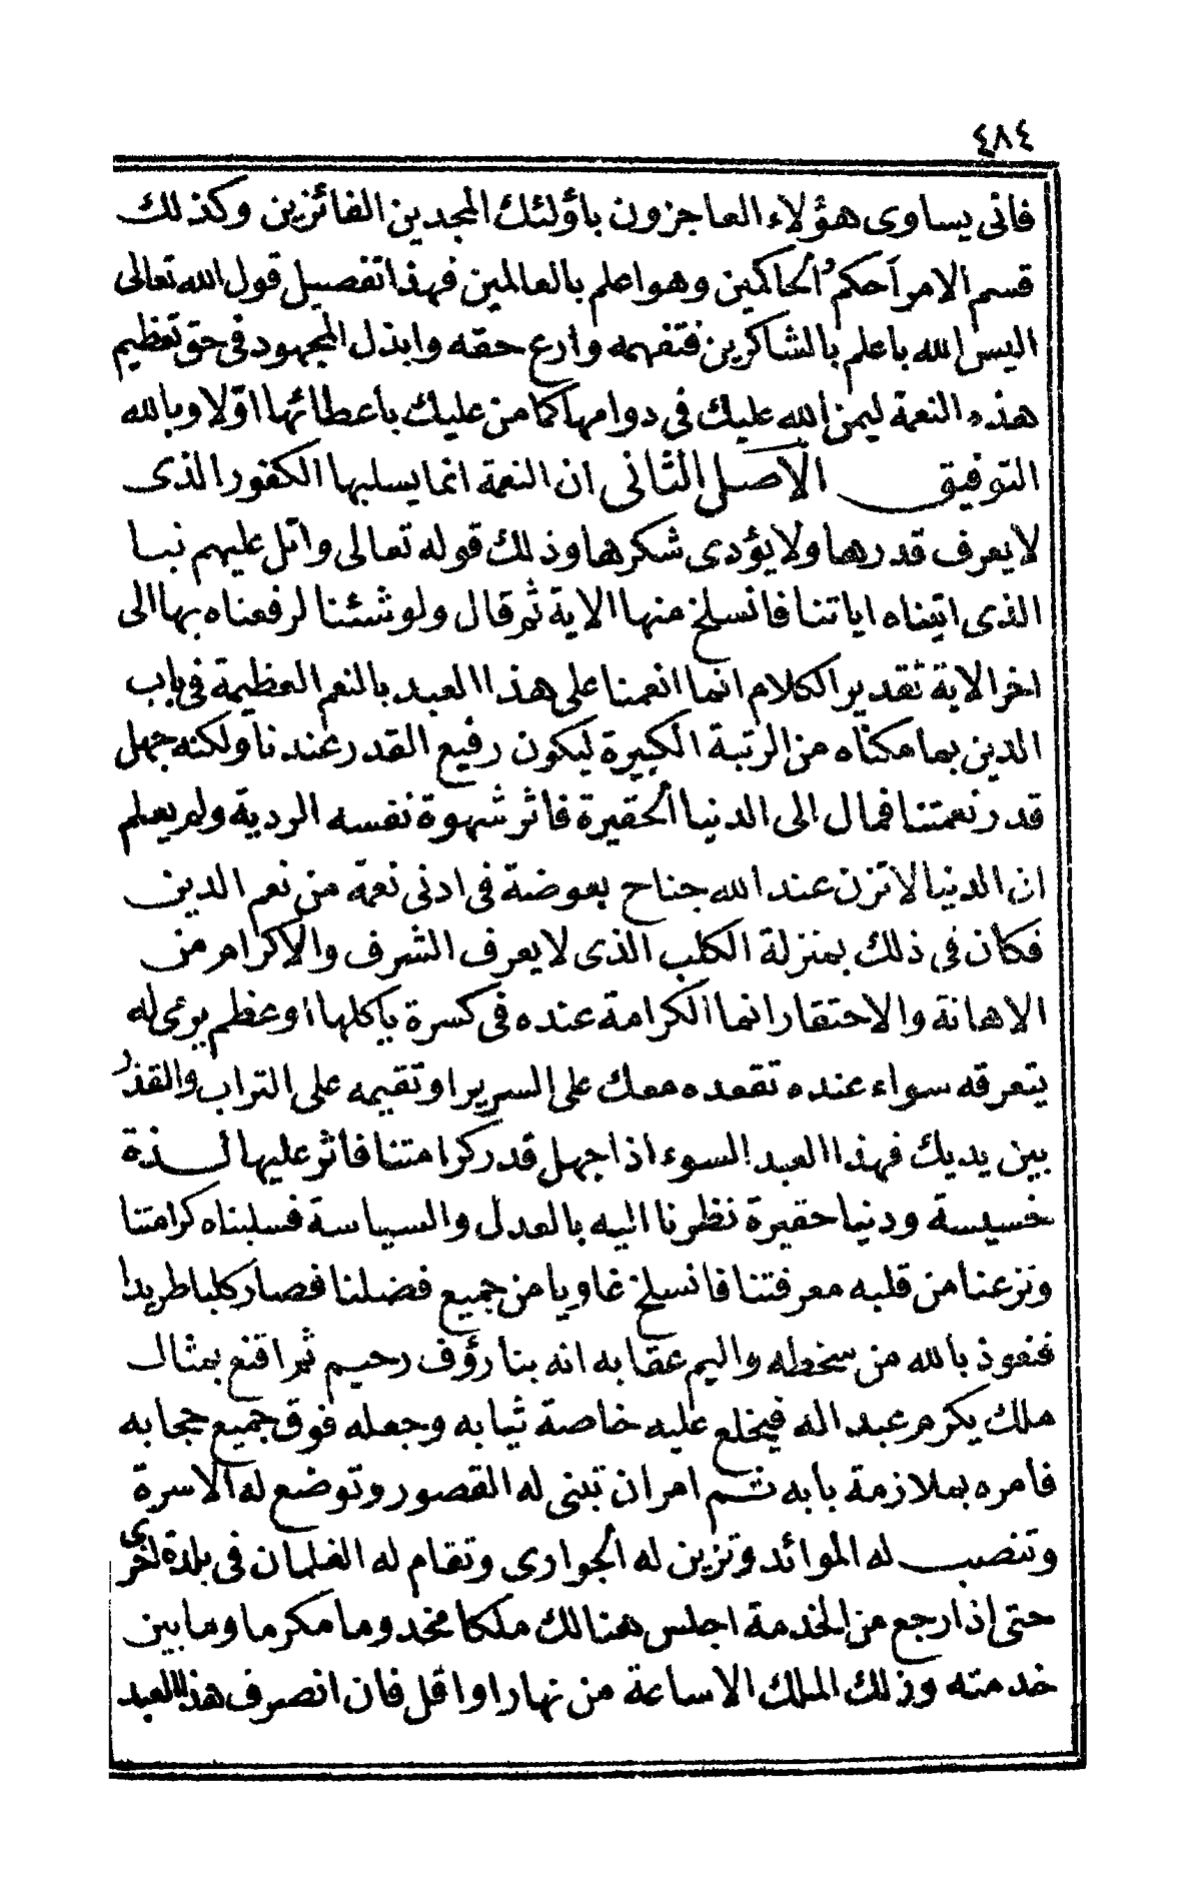 ٤٨٤
فانى يساوى هؤلاء العاجزون بأولئك المجدين الفائزين وكذلك
قسم الامر احكم الحاكمين وهو اعلم بالعالمين فهذا تفصيل قول الله تعالى
اليس الله باعلم بالشاكرين فتفهمه وارع حقه وابذل المجهود فى حق تعظيم
هذه النعمة ليمن الله عليك فى دوامها كما من عليك بأعطائها اوّلا وبالله
التوفيق الأصل الثانى ان النعمة انما يسلبها الكفور الذى
لا يعرف قدرها ولا يؤدى شكرها وذلك قوله تعالى واتل عليهم نبا
الذى اتيناه اياتنا فانسلخ منها الاية ثم قال ولو شئنا لرفعناه بها الى
اخر الاية تقدير الكلام انما انعمنا على هذا العبد بالنعم العظيمة فى باب
الدين بما مكناه من الرتبة الكبيرة ليكون رفيع القدر عندنا ولكنه جهل
قدر نعمتنا فمال الى الدنيا الحقيرة فاثر شهوة نفسه الردية ولم يعلم
ان الدنيا لا تزن عند الله جناح بعوضة فى ادنى نعمة من نعم الدين
فكان فى ذلك بمنزلة الكلب الذى لا يعرف الشرف والاكرام من
الاهانة والاحتقار انما الكرامة عنده فى كسرة يأكلها او عظم يرمى له
يتعرقه سواء عنده تقعده معك على السرير او تقيمه على التراب والقذر
بين يديك فهذا العبد السوء اذا جهل قدر كرامتنا فاثر عليها لـذة
خسيسة ودنيا حقيرة نظرنا اليه بالعدل والسياسة فسلبناه كرامتنا
ونزعنا من قلبه معرفتنا فانسلخ غاويا من جميع فضلنا فصار كلبا طريدا
فنعوذ بالله من سخطه واليم عقابه انه بنا رؤف رحيم ثم اقنع بمثال
ملك يكرم عبدا له فيخلع عليه خاصة ثيابه وجعله فوق جميع حجابه
فأمره بملازمة بابه ثم امر ان تبنى له القصور وتوضع له الاسرة
وتنصب له الموائد وتزين له الجوارى وتقام له الغلمان فى بلدة اخرى
حتى اذا رجع من الخدمة اجلس هنالك ملكا مخدوما مكرما وما بين
خدمته وذلك الملك الا ساعة من نهار او اقل فان انصرف هذا العبد